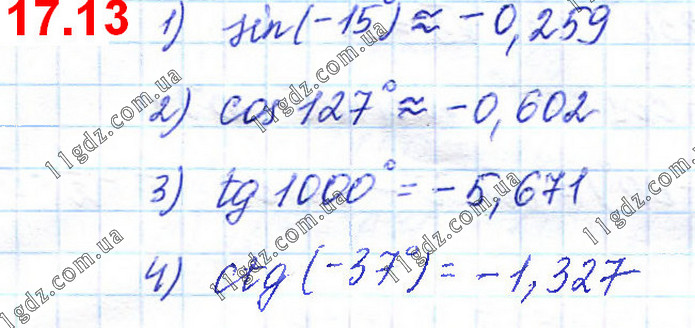 17.13
1) sin(-15°) ≈ -0,259
2) cos 127° ≈ -0,602
3) tg 1000° = -5,671
4) ctg (-37°) = -1,327
11gdz.com.ua
11gdz.com.ua
11gdz.com.ua
11gdz.com.ua
11gdz.com.ua
11gdz.com.ua